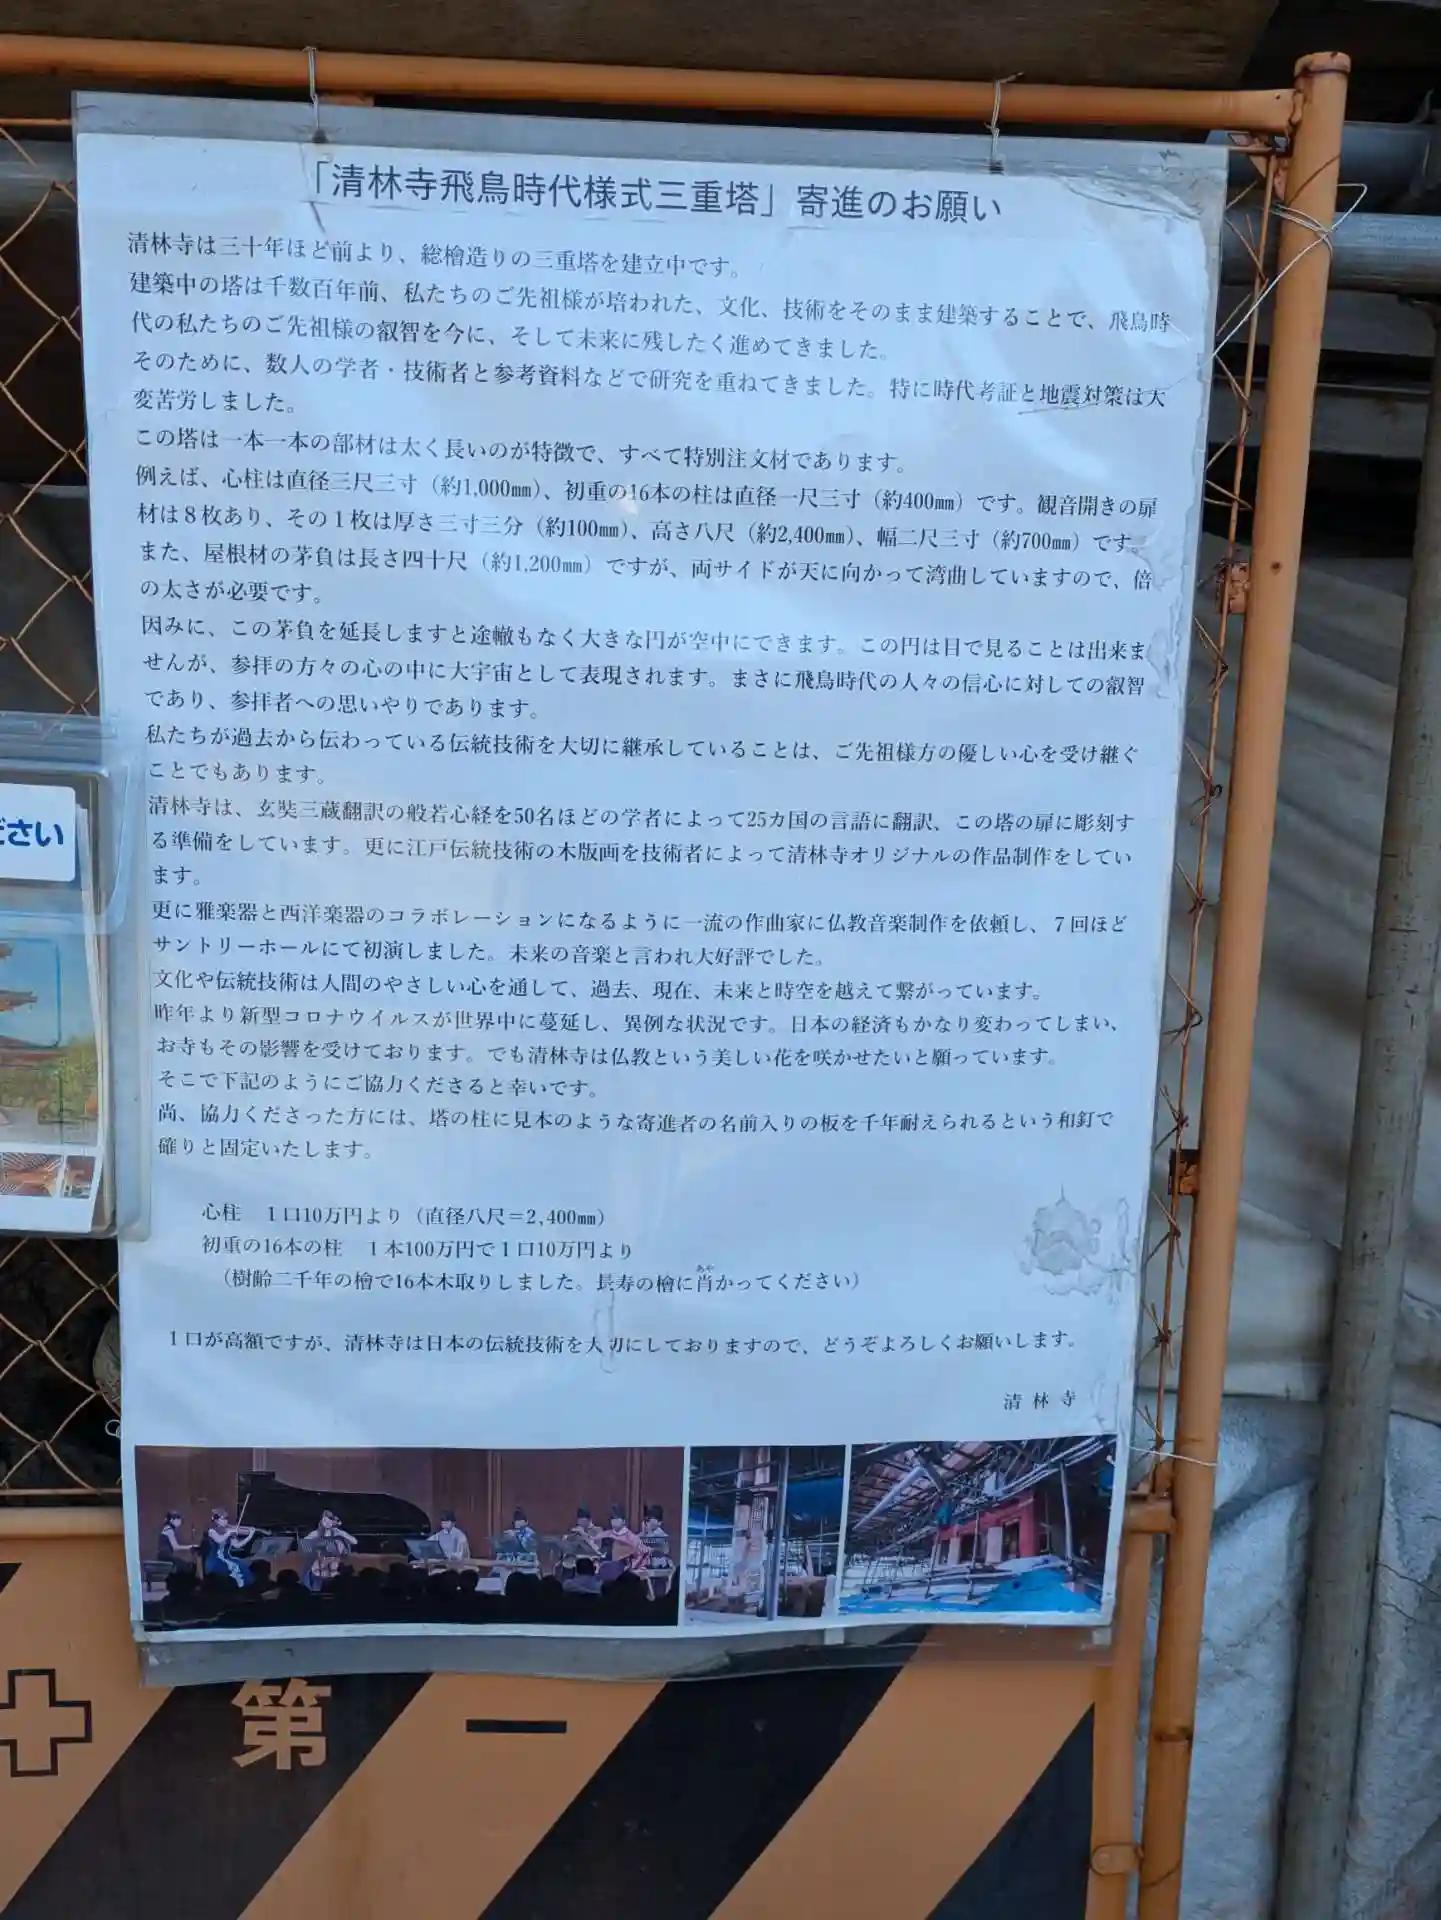 「清林寺飛鳥時代様式三重塔」寄進のお願い
清林寺は三十年ほど前より、総檜造りの三重塔を建立中です。
建築中の塔は千数百年前、私たちのご先祖様が培われた、文化、技術をそのまま建築することで、飛鳥時
代の私たちのご先祖様の叡智を今に、そして未来に残したく進めてきました。
そのために、数人の学者・技術者と参考資料などで研究を重ねてきました。特に時代考証と地震対策は大
変苦労しました。
この塔は一本一本の部材は太く長いのが特徴で、すべて特別注文材であります。
例えば、心柱は直径三尺三寸（約1,000㎜）、初重の16本の柱は直径一尺三寸（約400㎜）です。観音開きの扉
材は８枚あり、その１枚は厚さ三寸三分（約100㎜）、高さ八尺（約2,400㎜）、幅二尺三寸（約700㎜）です。
また、屋根材の茅負は長さ四十尺（約1,200㎜）ですが、両サイドが天に向かって湾曲していますので、倍
の太さが必要です。
因みに、この茅負を延長しますと途轍もなく大きな円が空中にできます。この円は目で見ることは出来ま
せんが、参拝の方々の心の中に大宇宙として表現されます。まさに飛鳥時代の人々の信心に対しての叡智
であり、参拝者への思いやりであります。
私たちが過去から伝わっている伝統技術を大切に継承していることは、ご先祖様方の優しい心を受け継ぐ
ことでもあります。
清林寺は、玄奘三蔵翻訳の般若心経を50名ほどの学者によって25カ国の言語に翻訳、この塔の扉に彫刻す
る準備をしています。更に江戸伝統技術の木版画を技術者によって清林寺オリジナルの作品制作をしてい
ます。
更に雅楽器と西洋楽器のコラボレーションになるように一流の作曲家に仏教音楽制作を依頼し、７回ほど
サントリーホールにて初演しました。未来の音楽と言われ大好評でした。
文化や伝統技術は人間のやさしい心を通して、過去、現在、未来と時空を越えて繋がっています。
昨年より新型コロナウイルスが世界中に蔓延し、異例な状況です。日本の経済もかなり変わってしまい、
お寺もその影響を受けております。でも清林寺は仏教という美しい花を咲かせたいと願っています。
そこで下記のようにご協力くださると幸いです。
尚、協力くださった方には、塔の柱に見本のような寄進者の名前入りの板を千年耐えられるという和釘で
確りと固定いたします。
心柱　１口10万円より（直径八尺＝2,400㎜）
初重の16本の柱　１本100万円で１口10万円より
あや
（樹齢二千年の檜で16本木取りしました。長寿の檜に肖かってください）
１口が高額ですが、清林寺は日本の伝統技術を大切にしておりますので、どうぞよろしくお願いします。
清林寺
ださい
第一